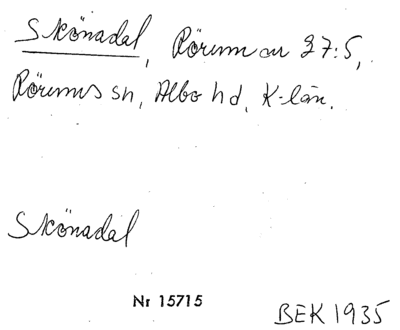 Skönadal, Rörum nr 27:5,
Rörums sn, Albo hd, K-län.
Skönadal
Nr 15715
BEK 1935